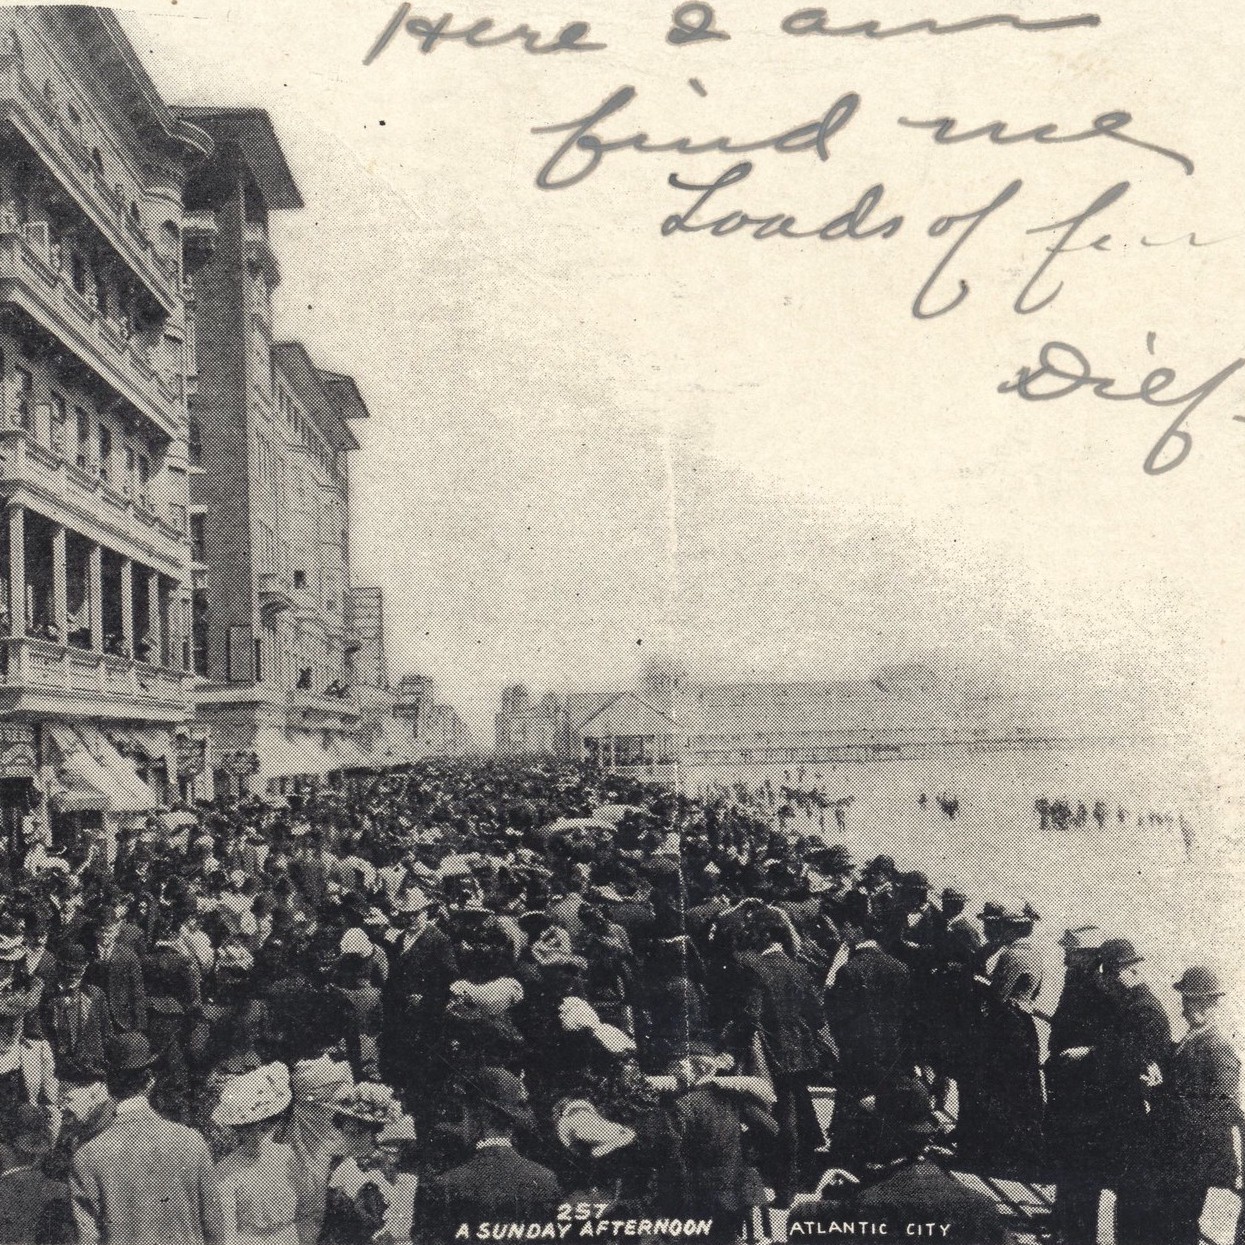 Here I am
find me
Loads of fun
257
A SUNDAY AFTERNOON ATLANTIC CITY